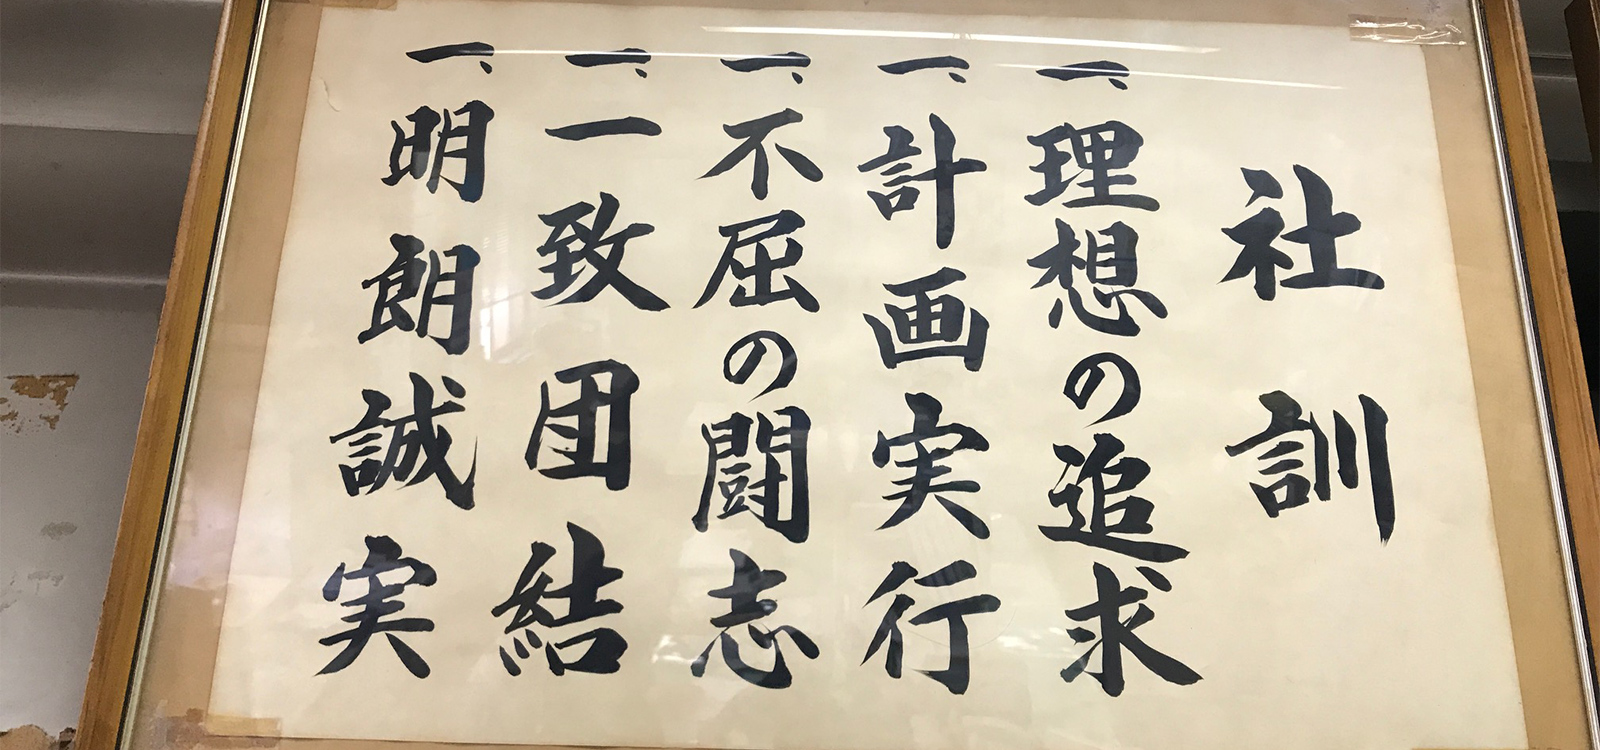 社訓
一、理想の追求
一、計画実行
一、不屈の闘志
一、一致団結
一、明朗誠実